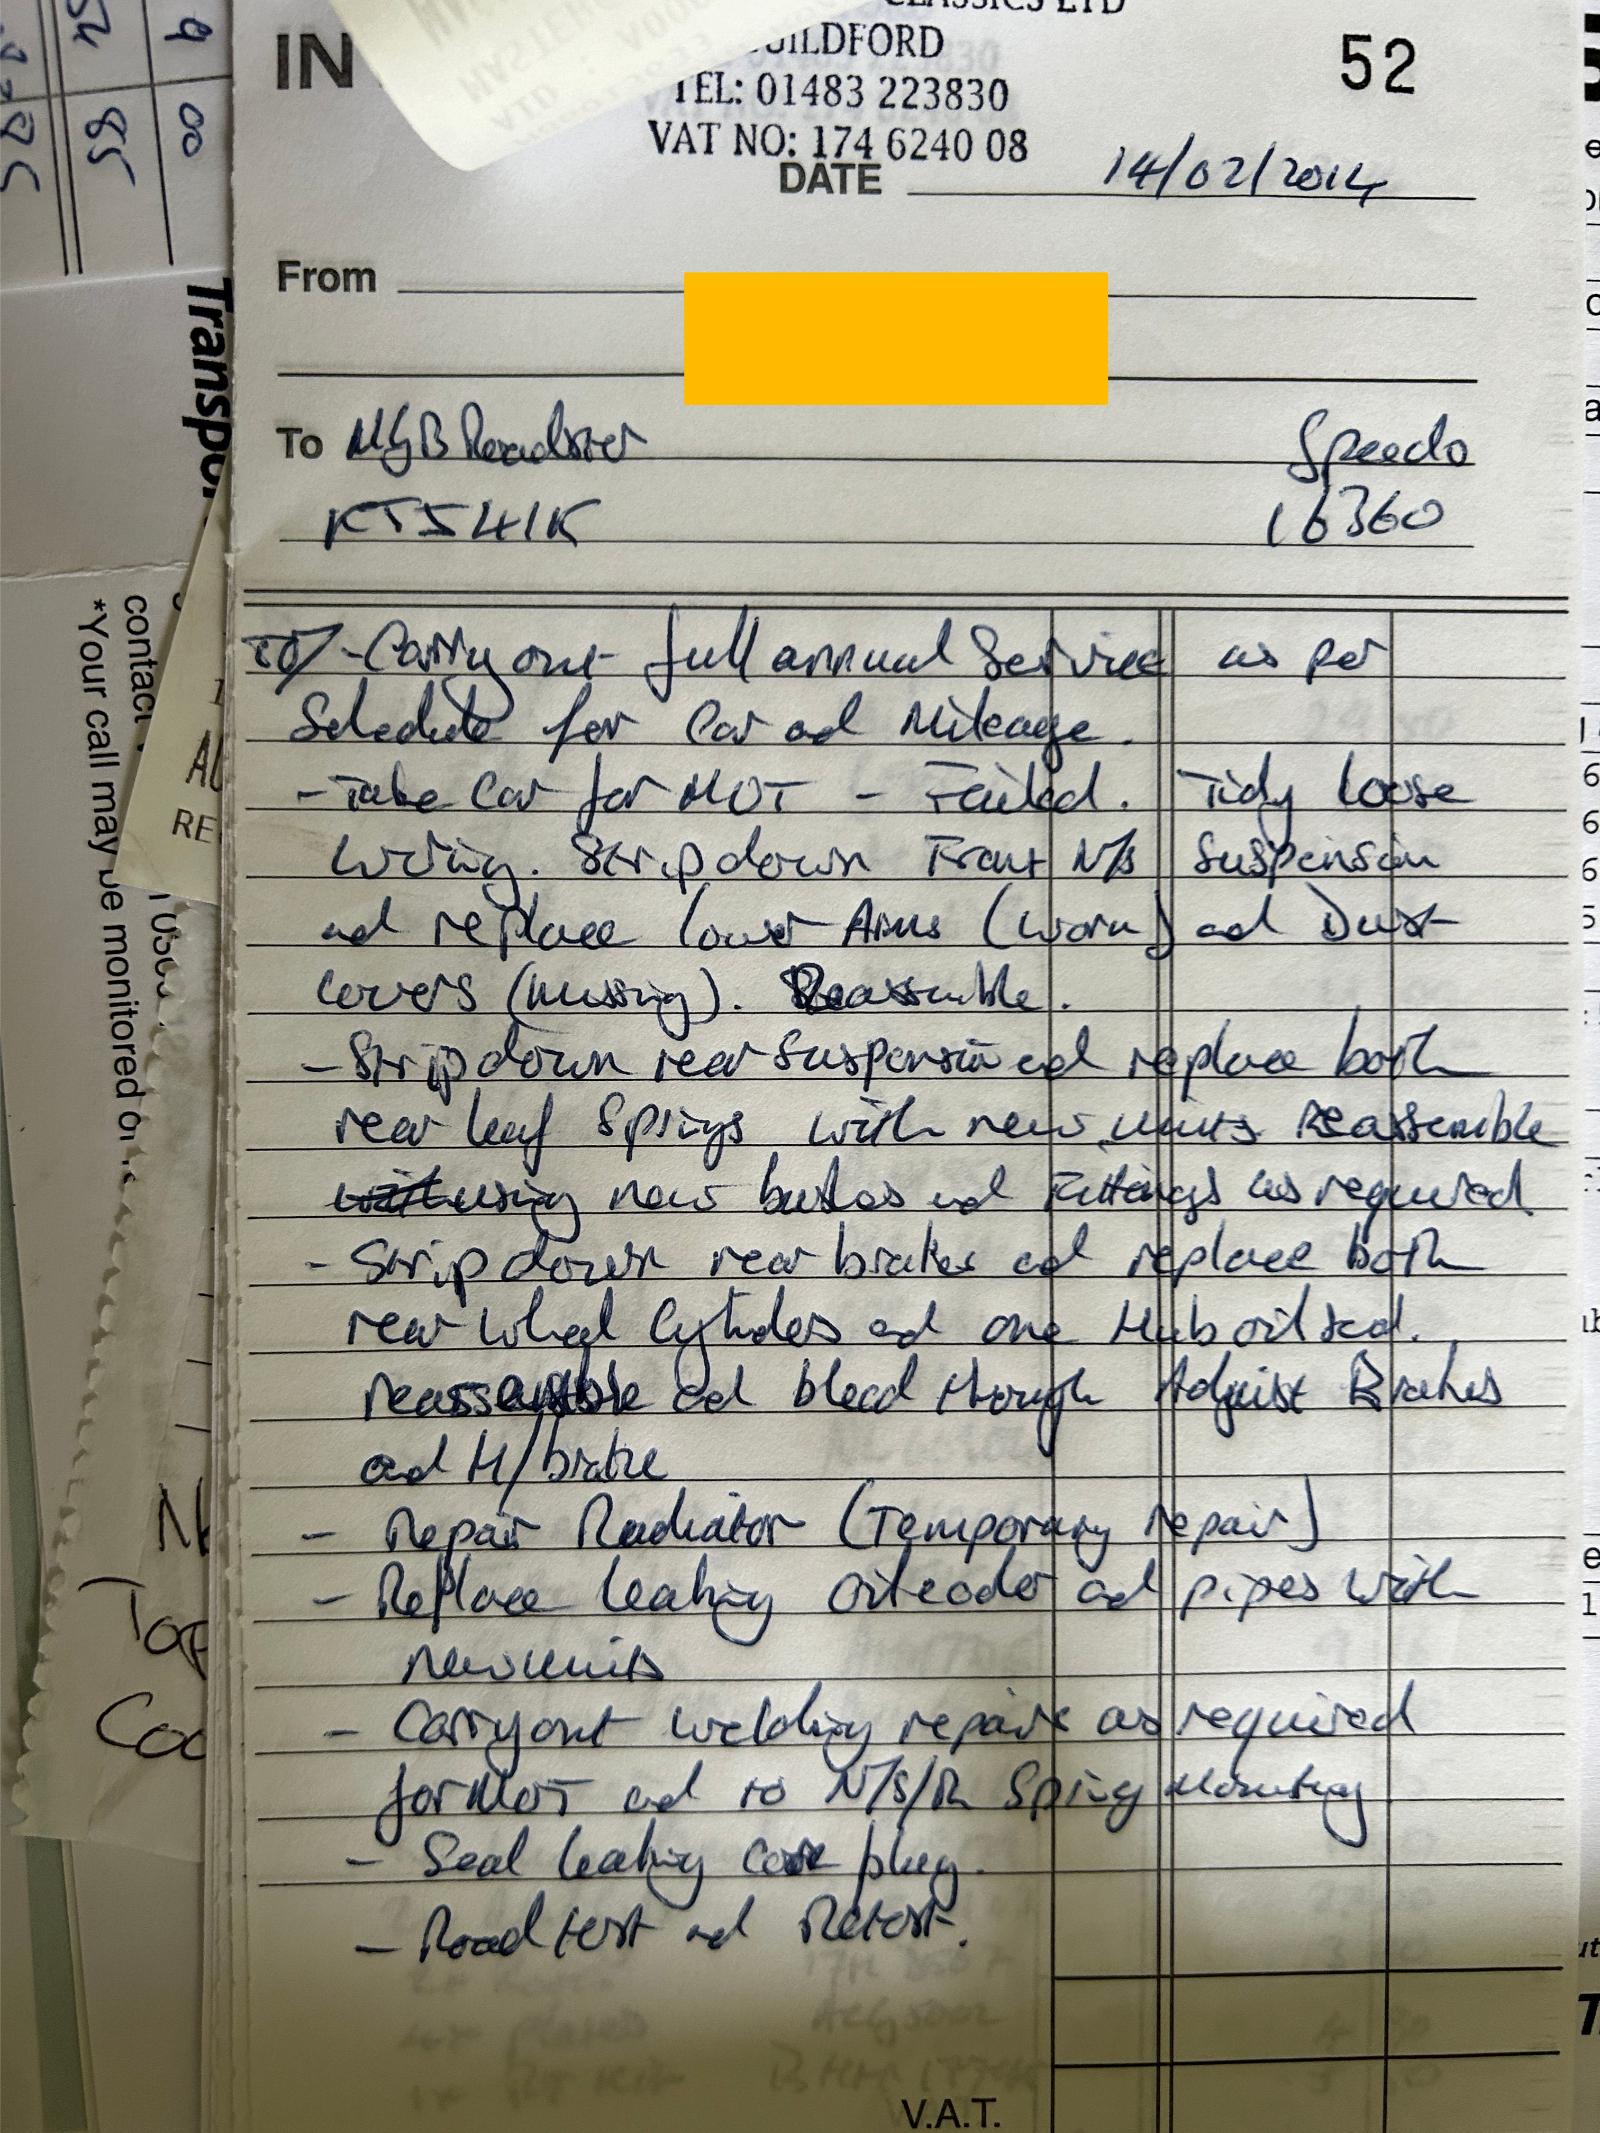 IN
CLASSICS LTD
GUILDFORD
TEL: 01483 223830
VAT NO: 174 6240 08
52
DATE 14/02/2014
From
To MGB Roadster Speedo
KTJ541K 16360
TO/- Carry out full annual Service as per
Schedule for Car ad Mileage.
- Take Car for MOT - Failed. Tidy loose
wiring. Strip down Front N/s Suspension
ad replace lower Arms (worn) ad Dust
covers (missing). Reassemble.
- Strip down rear Suspension ad replace both
rear leaf Springs with new units Reassemble
using new bushes ad Fittings as required
- Strip down rear brakes ad replace both
rear wheel Cylinders ad one Hub oil seal.
reassemble ad bleed through Adjust Brakes
ad H/brake
- Repair Radiator (Temporary repair)
- Replace leaking Oil cooler ad pipes with
new units
- Carry out welding repairs as required
for MOT ad to N/S/R Spring Mounting
- Seal leaking core plug.
- Road test ad Retest.
V.A.T.
Transpor
contact
*Your call may be monitored or
RE
Coo
9 00
54 85